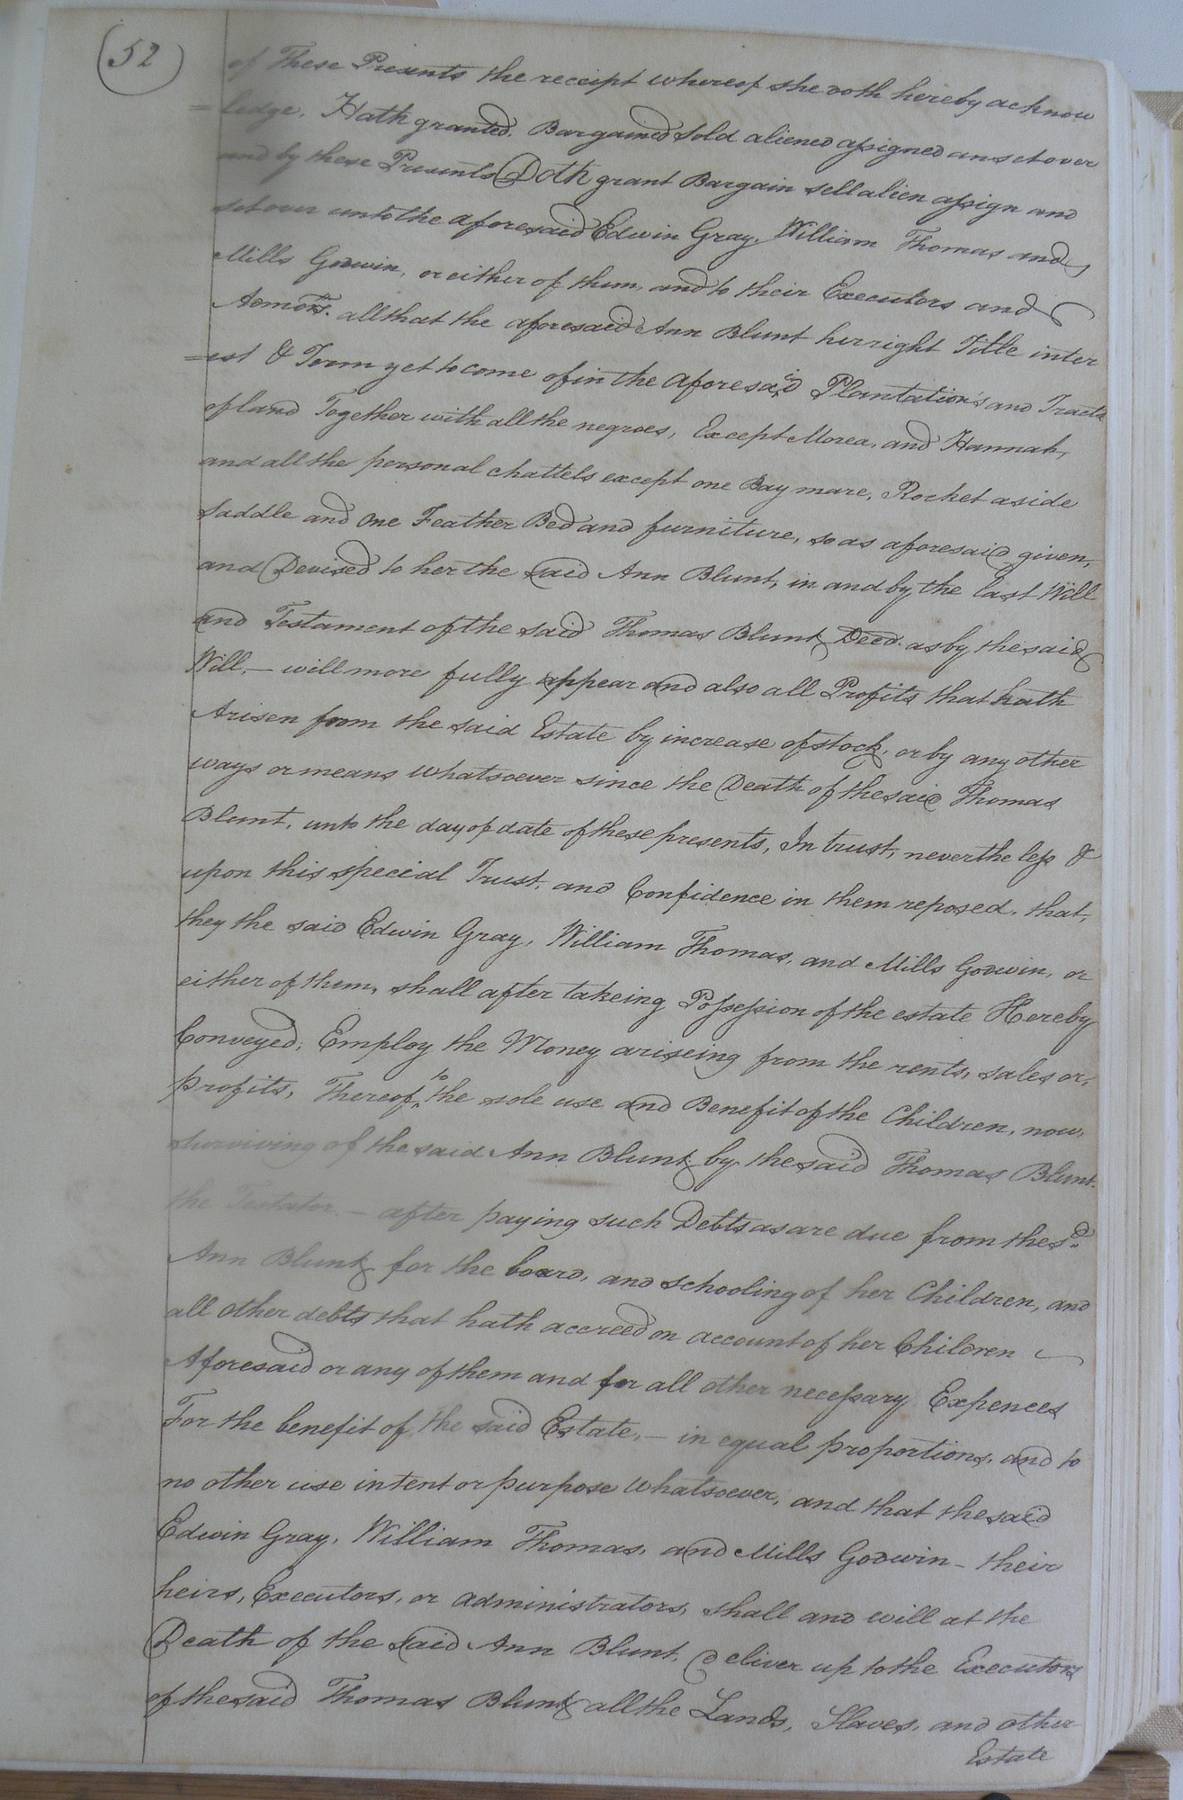 (52)
of These Presents the receipt whereof she doth hereby acknow
=ledge, Hath granted. Bargained Sold aliened assigned an set over
and by these Presents Doth grant Bargain sell alien assign and
set over unto the aforesaid Edwin Gray, William Thomas and
Mills Godwin, or either of them, and to their Executors and
Admors. all that the aforesaid Ann Blunt her right Title inter
=est & Term yet to come of in the aforesaid Plantations and Tracts
of land Together with all the negroes, Except Morea, and Hannah,
and all the personal chattels except one Bay mare, Rocket a side
Saddle and One Feather Bed and furniture, so as aforesaid given,
and Devised to her the said Ann Blunt, in and by the last Will
and Testament of the said Thomas Blunt Decd. as by the said
Will, — will more fully appear and also all Profits that hath
Arisen from the said Estate by increase of stock, or by any other
ways or means whatsoever since the Death of the said Thomas
Blunt, unto the day of date of these presents, In trust, never the less &
upon this special Trust, and Confidence in them reposed, that,
they the said Edwin Gray, William Thomas, and Mills Godwin, or
either of them, shall after takeing Possession of the estate Hereby
Conveyed; Employ the Money ariseing from the rents, sales or,
profits, Thereof, to the sole use and Benefit of the Children, now,
surviving of the said Ann Blunt by the said Thomas Blunt.
the Testator. — after paying such Debts as are due from the sd.
Ann Blunt for the board, and schooling of her Children, and
all other debts that hath accreed on account of her Children
Aforesaid or any of them and for all other necessary Expences
For the benefit of the said Estate, — in equal proportions, and to
no other use intent or purpose whatsoever, and that the said
Edwin Gray, William Thomas, and Mills Godwin - their
heirs, Executors, or administrators, shall and will at the
Death of the said Ann Blunt, deliver up to the Executors
of the said Thomas Blunt all the Lands, Slaves, and other
Estate